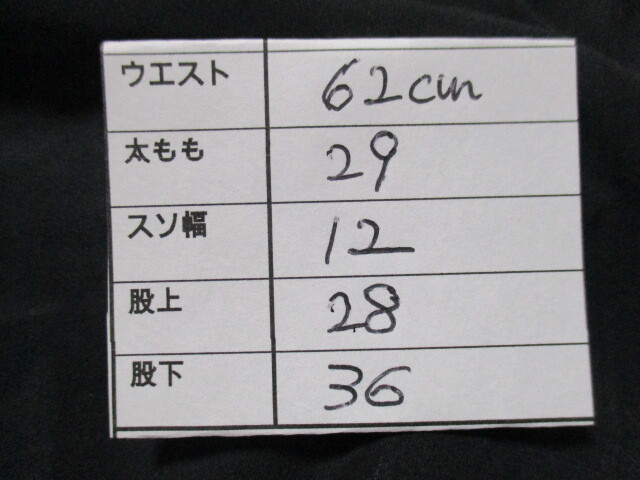 ウエスト 62cm
太もも 29
スソ幅 12
股上 28
股下 36